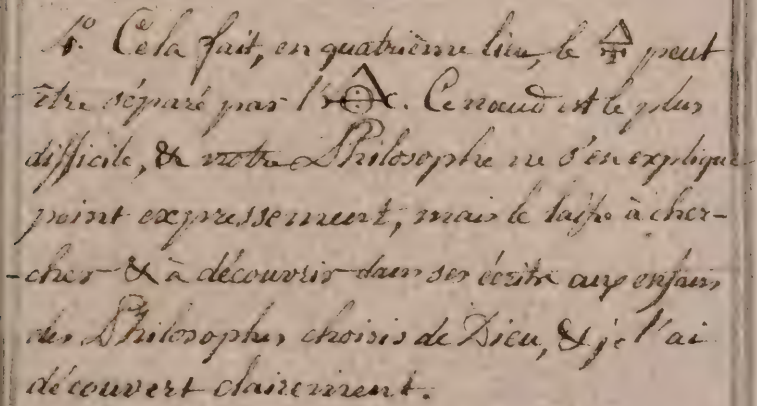 4.º Cela fait, en quatrième lieu, le 🜍 peut
être séparé par l'
. Ce nœud est le plus
difficile, & notre Philosophe ne s'en explique
point expressement, mais le laisse à cher-
-cher & à découvrir dans ses écrits aux enfans
des Philosophes choisis de Dieu, & je l'ai
découvert clairement.